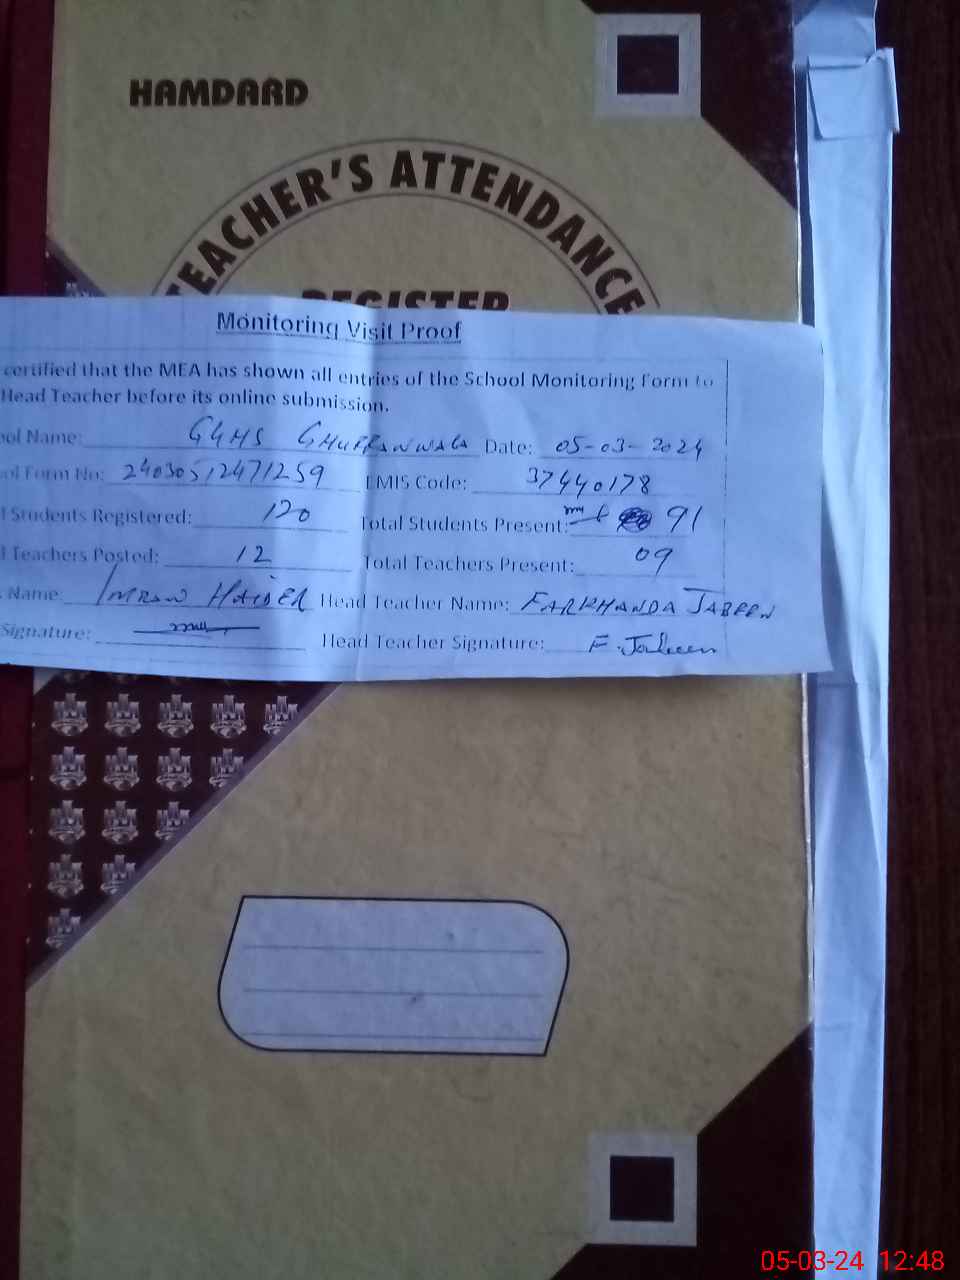 HAMDARD
TEACHER'S ATTENDANCE
REGISTER
Monitoring Visit Proof
certified that the MEA has shown all entries of the School Monitoring Form to
Head Teacher before its online submission.
ool Name: GGHS Date: 05-03-2024
ol Form No: 24030512471259 EMIS Code: 37440178
l Students Registered: 120 Total Students Present: 91
l Teachers Posted: 12 Total Teachers Present: 09
Name: Imran Haider Head Teacher Name: FARKHANDA JABEEN
Signature: Head Teacher Signature: F. Jabeen
05-03-24 12:48